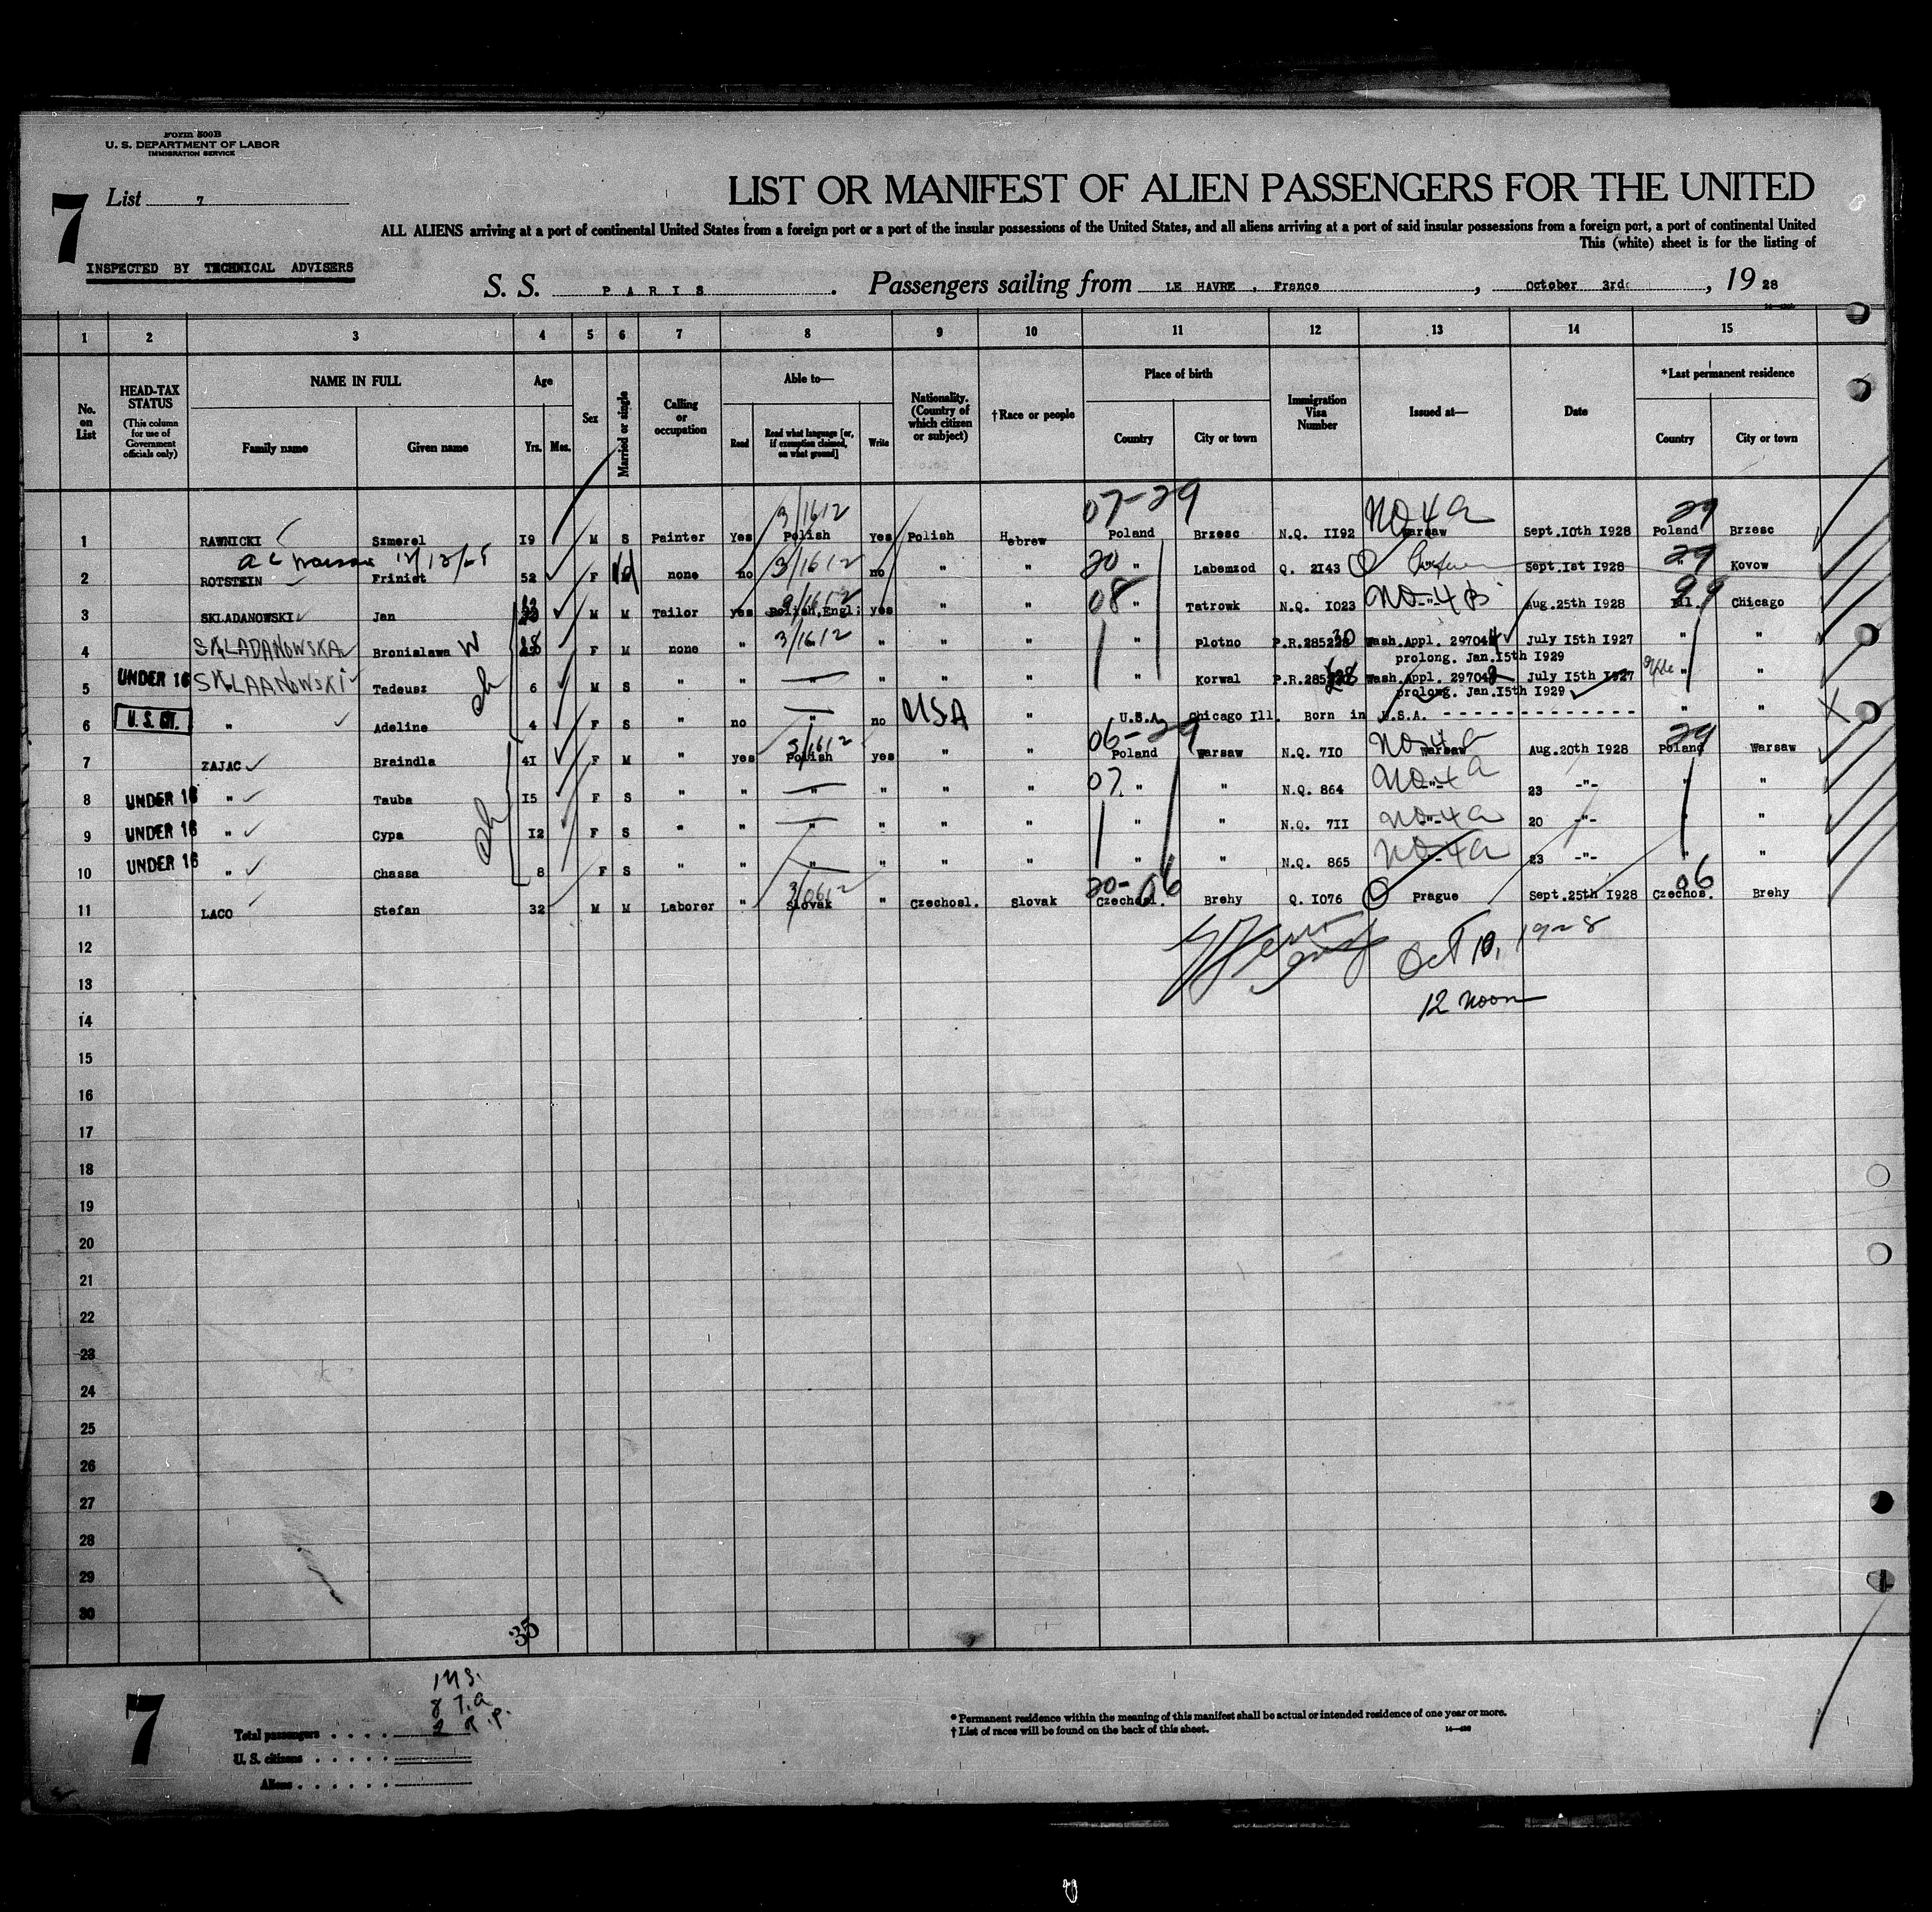 Form 500B
U. S. DEPARTMENT OF LABOR
IMMIGRATION SERVICE
7 List 7
LIST OR MANIFEST OF ALIEN PASSENGERS FOR THE UNITED
ALL ALIENS arriving at a port of continental United States from a foreign port or a port of the insular possessions of the United States, and all aliens arriving at a port of said insular possessions from a foreign port, a port of continental United
This (white) sheet is for the listing of
INSPECTED BY TECHNICAL ADVISERS
S. S. PARIS. Passengers sailing from LE HAVRE , France, October 3rd, 1928
1 2 3 4 5 6 7 8 9 10 11 12 13 14 15
No. on List
HEAD-TAX STATUS (This column for use of Government officials only)
NAME IN FULL Family name Given name
Age Yrs. Mos.
Sex
Married or single
Calling or occupation
Able to— Read Read what language [or, if exemption claimed, on what ground] Write
Nationality. (Country of which citizen or subject)
†Race or people
Place of birth Country City or town
Immigration Visa Number
Issued at—
Date
*Last permanent residence Country City or town
07-29 3/1612 NQ 4 a 29
1 RAWNICKI Szmerel 19 M S Painter Yes Polish Yes Polish Hebrew Poland Brzesc N.Q. 1192 Warsaw Sept.10th 1928 Poland Brzesc
2 ROTSTEIN Friniet 52 F none no 3/1612 no " " 20 " Labemzod Q. 2143 Sept.1st 1928 29 " Kovow
3 SKLADANOWSKI Jan M M Tailor yes Polish,Engl; yes " " 08 " Tatrowk N.Q. 1023 NQ-"-4 B Aug.25th 1928 99 Ill. Chicago
4 SKLADANOWSKA Bronislawa W F M none " 3/1612 " " " " Plotno P.R.2852 30 Wash.Appl. 29704 July 15th 1927 " "
prolong. Jan.15th 1929
5 UNDER 16 SKLAANOWSKI Tadeusz 6 M S " " " " " " " Korwal P.R.285 Wash.Appl. 29704 July 15th 1927 " "
prolong. Jan.15th 1929
6 U. S. CIT. " Adeline 4 F S " no " no USA " U.S.A. Chicago Ill. Born in U.S.A. - - - - - - - - - - - - - " "
06-29 3/1612 29
7 ZAJAC Braindla 41 F M " yes Polish yes " " Poland Warsaw N.Q. 710 Warsaw Aug.20th 1928 Poland Warsaw
8 UNDER 16 " Tauba 15 F S " " " " " " 07. " " N.Q. 864 NQ-"-4 a 23 -"- " "
9 UNDER 16 " Cypa 12 F S " " " " " " " " N.Q. 711 NQ-"-4 a 20 -"- " "
10 UNDER 16 " Chassa 8 F S " " " " " " " " N.Q. 865 NQ-"-4 a 23 -"- " "
20-06 3/0612 06
11 LACO Stefan 32 M M Laborer " Slovak " Czechosl. Slovak Czechosl. Brehy Q. 1076 Prague Sept.25th 1928 Czechos. Brehy
12
Oct 10, 1928
13
12 noon
14
15
16
17
18
19
20
21
22
23
24
25
26
27
28
29
30
35
7
Total passengers
U. S. citizens
Aliens
* Permanent residence within the meaning of this manifest shall be actual or intended residence of one year or more.
† List of races will be found on the back of this sheet.